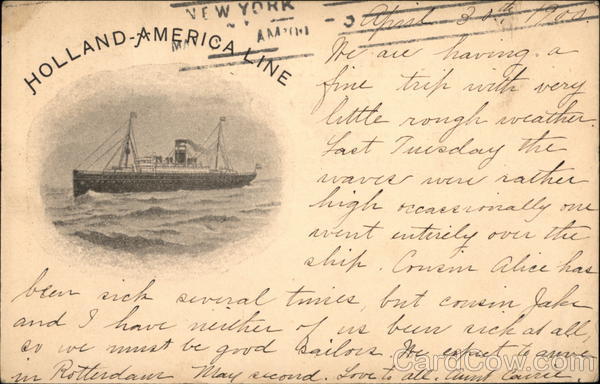 NEW YORK
AM
HOLLAND-AMERICA LINE
April 30th 1900
We are having a
fine trip with very
little rough weather.
Last Tuesday the
waves were rather
high occassionally one
went entirely over the
ship. Cousin Alice has
been sick several times, but cousin Jake
and I have neither of us been sick at all,
so we must be good sailors. We expect to arrive
in Rotterdam May second. Love to all.
CardCow.com